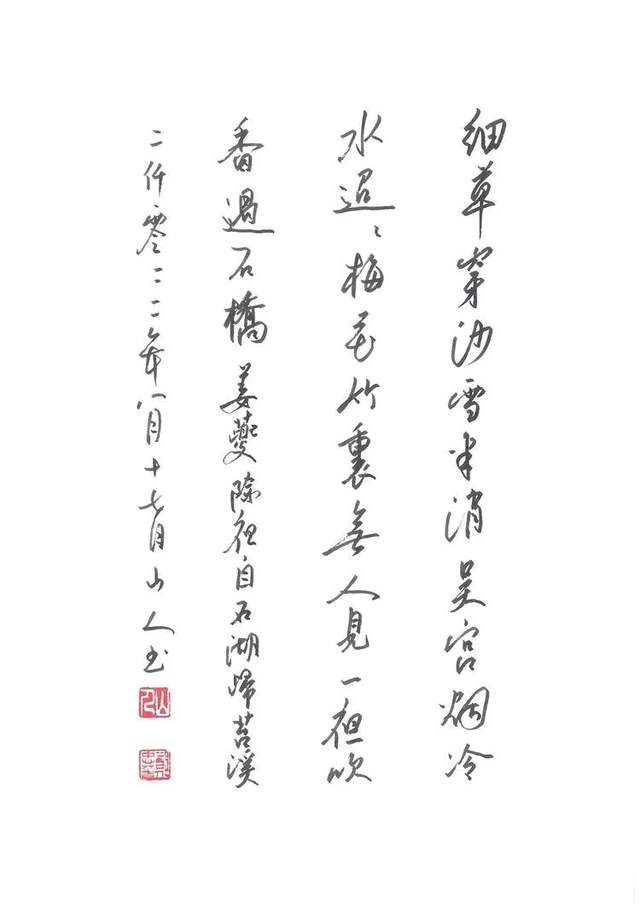 細草穿沙雪半消吴宫烟冷
水迢〻梅花竹裏無人見一夜吹
香過石橋 姜夔除夜自石湖歸苕溪
二仟零二二年八月十七日山人书
山人